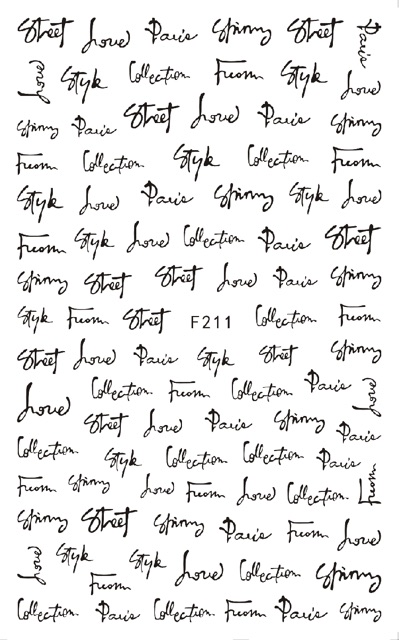 Street Loved Paris Spinny Street Paris
Loved Style Collection. From Style Loved
Spinny Paris Street Loved Paris Spinny
From Collection. Style Collection. From
Style Loved Paris Spinny Style Loved
From Style Loved Collection. Paris Street
Spinny Street Street Loved Paris Spinny
Style From Street F211 Collection. From
Street Loved Paris Style Street Spinny
Loved Collection. From Collection. Paris Loved
Street Loved Paris Spinny Paris
Collection. Style Collection. Collection. Paris
From Spinny Loved From Loved Collection. From
Spinny Street Spinny Paris From Loved
Loved Style From Style Loved Collection. Spinny
Collection. Paris Collection. From Paris Spinny